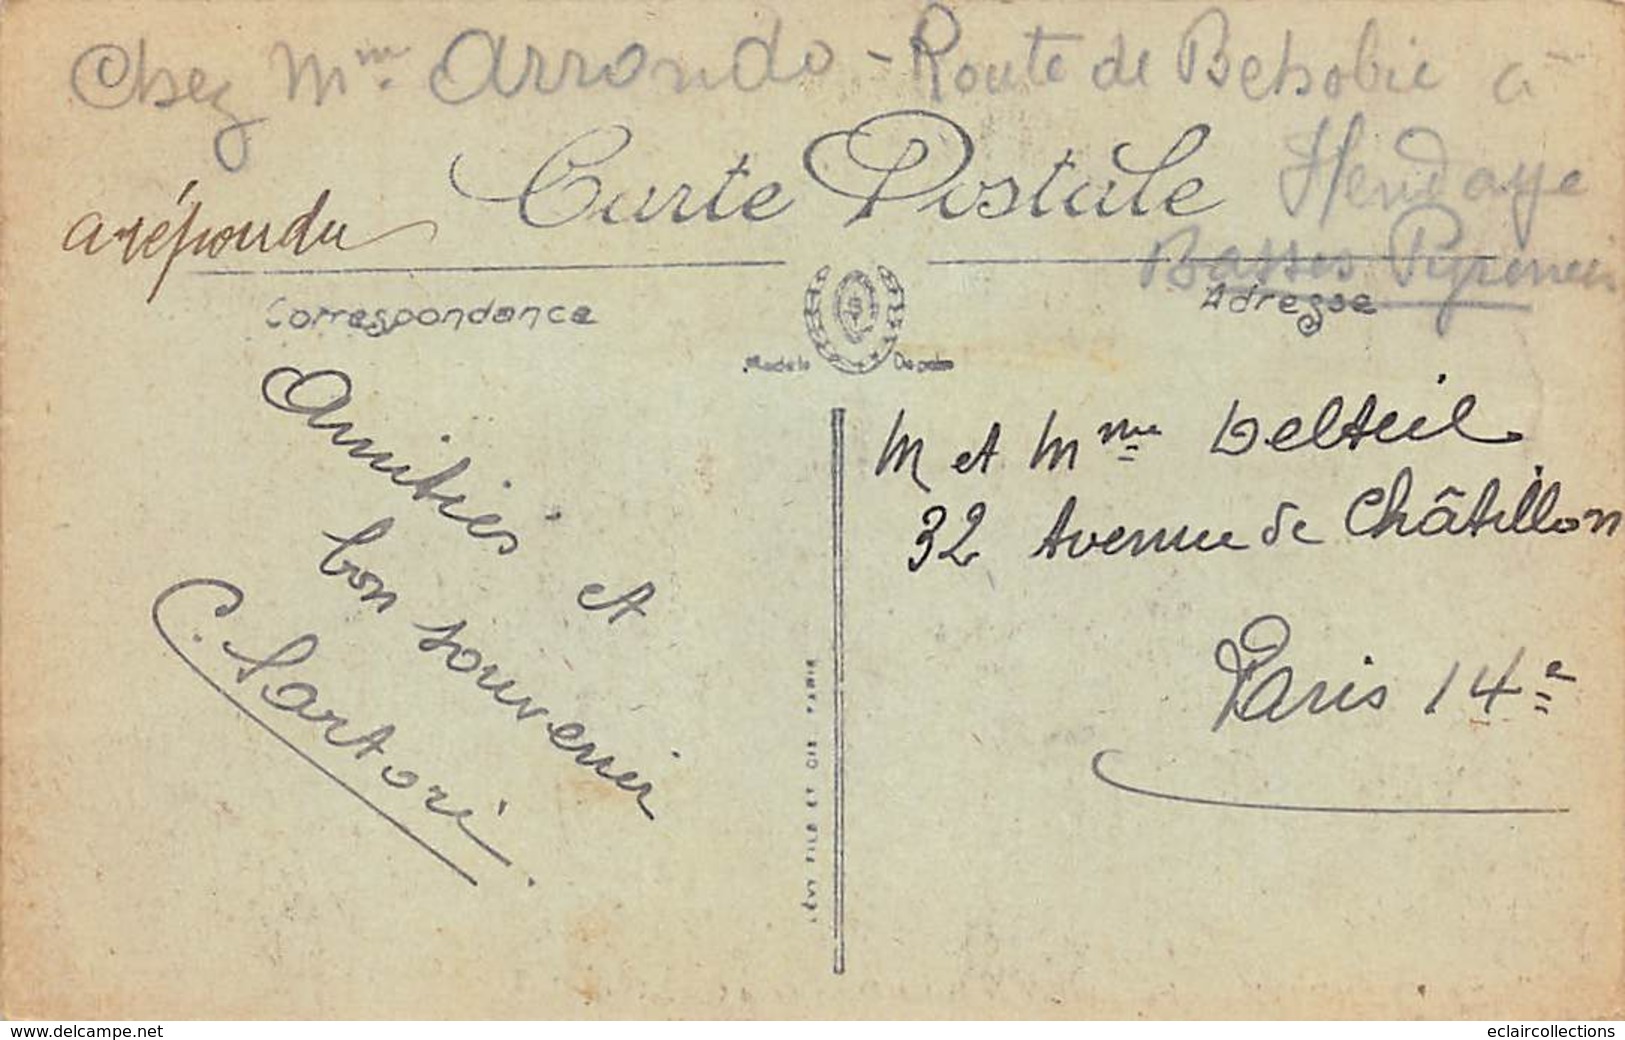 Chez Mme Arrondo - Route de Behobie à
Hendaye
Basses Pyrénées
Carte Postale
a répondu
Correspondance
Adresse
Modèle Déposé
Amitiés et
bon souvenir
C. Sartori
M et Mme Delteil
32 Avenue de Châtillon
Paris 14e
LÉVY FILS ET CIE PARIS
www.delcampe.net
eclaircollections